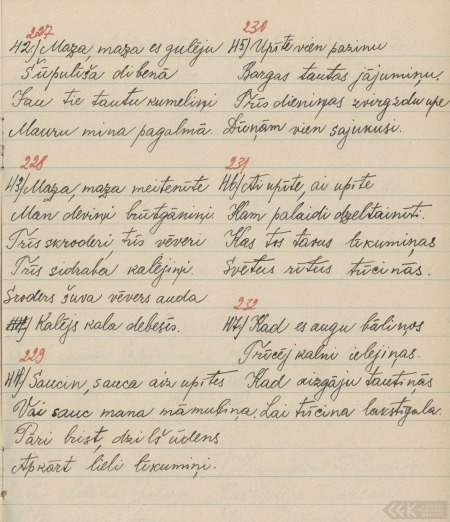 227
42.) Maza maza es gulēju
Šūpulīša dibenā
Jau tie tautu kumeliņi
Mauru mina pagalmā.
228
43) Maza, maza meitenīte
Man deviņi brūtgāniņi.
Trīs skroderi, trīs vēveri
Trīs sidraba kalējiņi.
Sroders šuva vēvers auda
Kalējs kala debesīs.
229
44) Saucin, sauca aiz upītes
Vai sauc mana māmuliņa.
Pāri brist, dziļš ūdens
Apkārt lieli līkumiņi.
230
45) Upīte vien pazinu
Bargas tautas jājumiņu.
Trīs dieniņas zvirgzdu upe
Dūņām vien sajukusi.
231
46) Ai upīte, ai upīte
Kam palaidi dzeltainīti.
Kas tos tavus līkumiņas
Svētus rītus rūcinās.
232
47) Kad es augu bāliņos
Trūcēj kalni ielejiņas.
Kad aizgāju tautiņās
Lai rūcina lakstīgala.